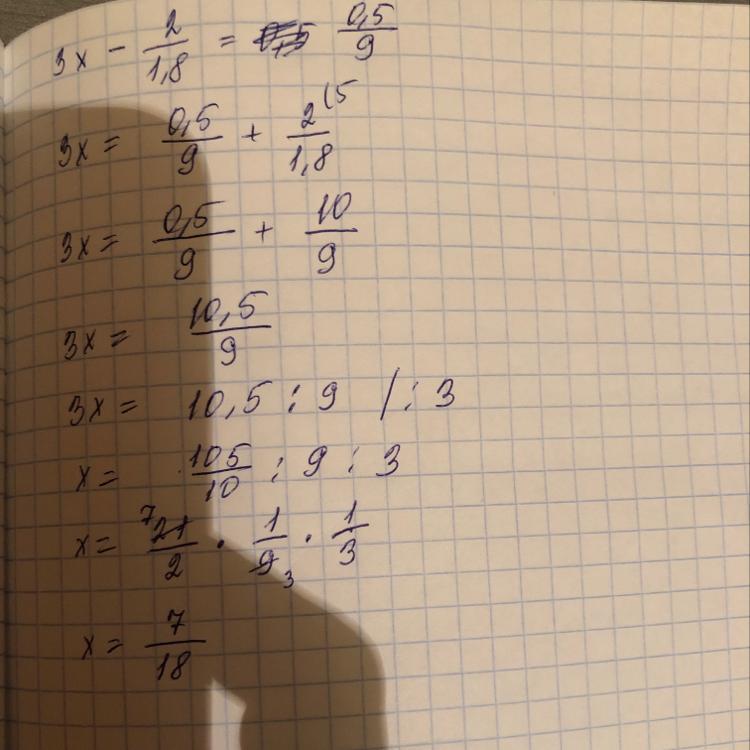 3x - 2/1,8 = 0,5/9
3x = 0,5/9 + 2(5/1,8
3x = 0,5/9 + 10/9
3x = 10,5/9
3x = 10,5 : 9 /: 3
x = 105/10 : 9 : 3
x = 7 21/2 · 1/9 3 · 1/3
x = 7/18